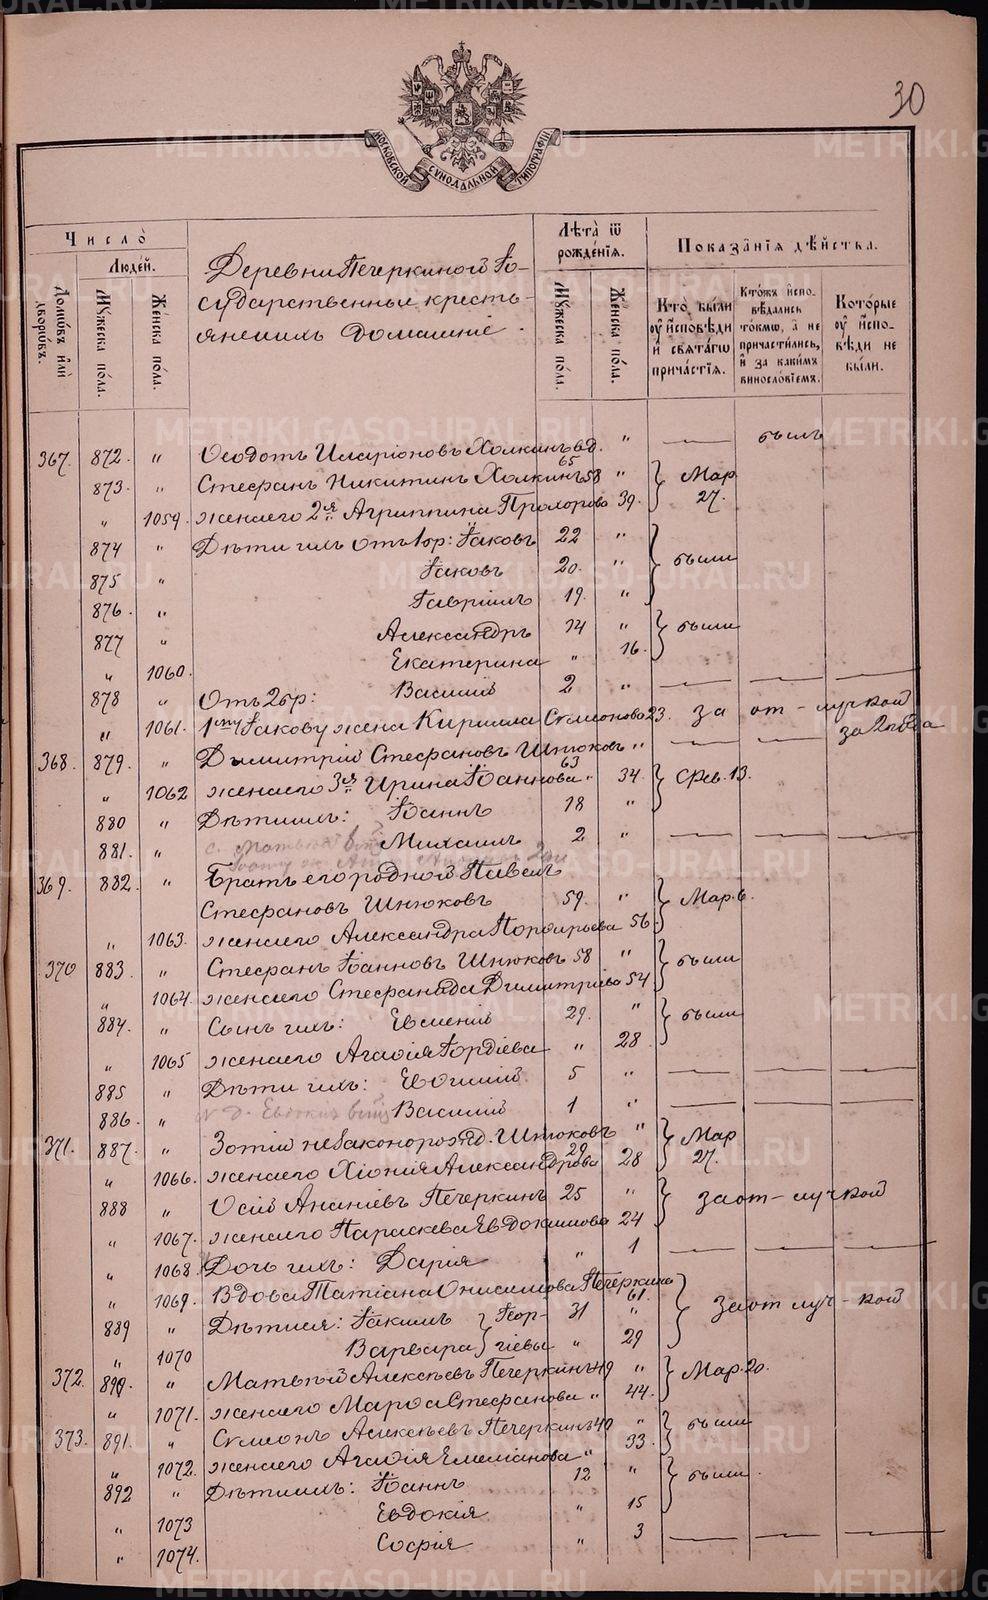 30
МОСКОВСКОЙ СѴНОДАЛЬНОЙ ТИПОГРАФІИ
Число̀
Домѡвъ илѝ дворѡвъ.
Людей.
Мꙋжеска по́ла.
Же́нска по́ла.
Деревни Печеркиной Го-
сударственные кресть-
яне и ихъ домашніе.
Лѣта̀ ѿ рожде́нїѧ.
Мꙋжеска по́ла.
Же́нска по́ла.
Показа́нїѧ дѣ́йства.
Кто̀ бы́ли оу҆ и҆сповѣди и҆ свѧта́гѡ прича́стїѧ.
Кто́жъ и҆спо- вѣдались то́кмѡ, а҆ не причасти́лись, и҆ за каки́мъ винослѡ́вїемъ.
Кото́рые оу҆ и҆спо- вѣди не бы́ли.
367. 872. " Ѳеодотъ Иларіоновъ Холкинъ вд. 65 " — былъ
873. " Стефанъ Никитинъ Холкинъ 58 " Мар. 27.
" 1059. жена его 2я Агриппина Прохорова 39.
874 " Дѣти ихъ отъ 1 бр: Іаковъ 22 "
875 " Іаковъ 20. " были
876. " Гавріилъ 19. "
877 " Александръ 14 " были
" 1060. Екатерина " 16.
878 " Отъ 2 бр: Василій 2 " — — —
" 1061. 1му Іакову жена Кирилла Симеонова 23. за от-лучкой
за 2 года
368. 879. " Димитрій Стефановъ Шнюковъ 63 " — — —
" 1062 жена его 3я Ирина Іоаннова " 34. Фев. 13.
880 " Дѣти ихъ: Іоаннъ 18 "
881. " Михаилъ 2 " — — —
369. 882. " Братъ его родной Павелъ
Стефановъ Шнюковъ 59. " Мар. 6.
" 1063. жена его Александра Порфирьева 56.
370 883. " Стефанъ Іоанновъ Шнюковъ 58 " были
" 1064. жена его Стефанида Димитріева 54
884. " Сынъ ихъ: Евмений 29. " были
" 1065 жена его Агафія Гордіева " 28.
885 " Дѣти ихъ: Евфимій 5 " — — —
886. " Василій 1 " — — —
371. 887. " Зотій незаконорожд. Шнюковъ 29 " Мар 27.
" 1066. жена его Хіонія Александрова 28
888 " Осій Ананіевъ Печеркинъ 25 " за от-лучкой
" 1067. жена его Параскева Евдокимова 24
" 1068. Дочь ихъ: Дарія " 1 — — —
" 1069. Вдова Татіана Онисимова Печеркина 61.
889 " Дѣти ея: Іакимъ Геор- 31 " за от луч-кой
" 1070 Варвара гіевы " 29
372. 890. " Матѳей Алексѣевъ Печеркинъ 49 " Мар. 20.
" 1071. жена его Марѳа Стефанова " 44.
373. 891. " Симеонъ Алексѣевъ Печеркинъ 40 " были
" 1072. жена его Агафія Емеліанова " 33.
892 " Дѣти ихъ: Іоаннъ 12 " были.
" 1073 Евдокія " 15
" 1074. Софія " 3 — — —
METRIKI.GASO-URAL.RU